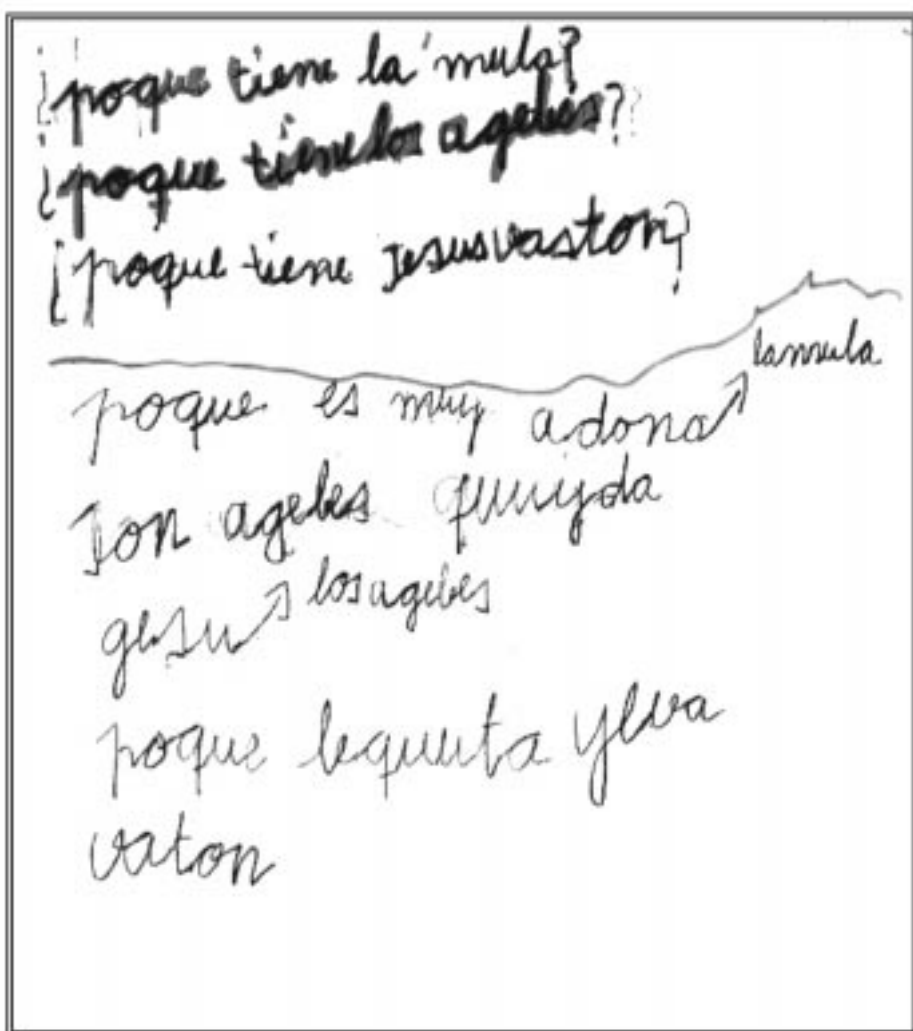 ¿poque tiene la mula?
¿poque tiene los agebes?
¿poque tiene Jesus vaston?
la mula
poque es muy adona
son agebes
gesu los agebes
poque legusta yleva
vaton